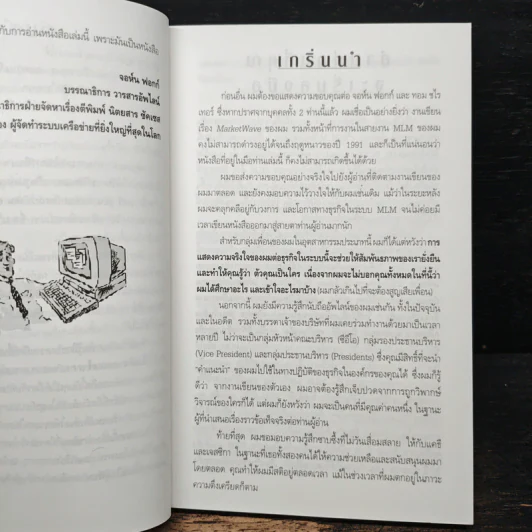 กับการอ่านหนังสือเล่มนี้ เพราะมันเป็นหนังสือ
จอห์น ฟอกก์
บรรณาธิการ วารสารอัพไลน์
ธิการฝ่ายจัดหาเรื่องตีพิมพ์ นิตยสาร ซัคเซส
ผู้จัดทำระบบเครือข่ายที่ยิ่งใหญ่ที่สุดในโลก
เกริ่นนำ
ก่อนอื่น ผมต้องขอแสดงความขอบคุณต่อ จอห์น ฟอกก์ และ ทอม ชไร
เทอร์ ซึ่งหากปราศจากบุคคลทั้ง 2 ท่านนี้แล้ว ผมเชื่อเป็นอย่างยิ่งว่า งานเขียน
เรื่อง MarketWave ของผม รวมทั้งหน้าที่การงานในสายงาน MLM ของผม
คงไม่สามารถดำรงอยู่ได้จนถึงฤดูหนาวของปี 1991 และก็เป็นที่แน่นอนว่า
หนังสือที่อยู่ในมือท่านเล่มนี้ ก็คงไม่สามารถเกิดขึ้นได้ด้วย
ผมขอส่งความขอบคุณอย่างจริงใจไปยังผู้อ่านที่ติดตามงานเขียนของ
ผมมาตลอด และยังคงมอบความไว้วางใจให้กับผมเช่นเดิม แม้ว่าในระยะหลัง
ผมจะคลุกคลีอยู่กับวงการ และโอกาสทางธุรกิจในระบบ MLM จนไม่ค่อยมี
เวลาเขียนหนังสือออกมาสู่สายตาท่านผู้อ่านมากนัก
สำหรับกลุ่มเพื่อนของผมในอุตสาหกรรมประเภทนี้ ผมก็ได้แต่หวังว่า การ
แสดงความจริงใจของผมต่อธุรกิจในระบบนี้จะช่วยให้สัมพันธภาพของเรายั่งยืน
และทำให้คุณรู้ว่า ตัวคุณเป็นใคร เนื่องจากผมจะไม่บอกคุณทั้งหมดในที่นี้ว่า
ผมได้ศึกษาอะไร และเข้าใจอะไรมาบ้าง (ผมกลัวเกินไปที่จะต้องสูญเสียเพื่อน)
นอกจากนี้ ผมยังมีความรู้สึกนับถืออัพไลน์ของผมเช่นกัน ทั้งในปัจจุบัน
และในอดีต รวมทั้งบรรดาเจ้าของบริษัทที่ผมเคยร่วมทำงานด้วยมาเป็นเวลา
หลายปี ไม่ว่าจะเป็นกลุ่มหัวหน้าคณะบริหาร (ซีอีโอ) กลุ่มรองประธานบริหาร
(Vice President) และกลุ่มประธานบริหาร (Presidents) ซึ่งคุณมีสิทธิ์ที่จะนำ
"คำแนะนำ" ของผมไปใช้ในทางปฏิบัติของธุรกิจในองค์กรของคุณได้ ซึ่งผมก็รู้
ดีว่า จากงานเขียนของตัวเอง ผมอาจต้องรู้สึกเจ็บปวดจากการถูกวิพากษ์
วิจารณ์ของใครก็ได้ แต่ผมก็ยังหวังว่า ผมจะเป็นคนที่มีคุณค่าคนหนึ่ง ในฐานะ
ผู้ที่นำเสนอเรื่องราวข้อเท็จจริงต่อท่านผู้อ่าน
ท้ายที่สุด ผมขอมอบความรู้สึกซาบซึ้งที่ไม่วันเสื่อมสลาย ให้กับแคธี
และเจสซิกา ในฐานะที่เธอทั้งสองคนได้ให้ความช่วยเหลือและสนับสนุนผมมา
โดยตลอด คุณทำให้ผมมีสติอยู่ตลอดเวลา แม้ในช่วงเวลาที่ผมตกอยู่ในภาวะ
ความตึงเครียดก็ตาม